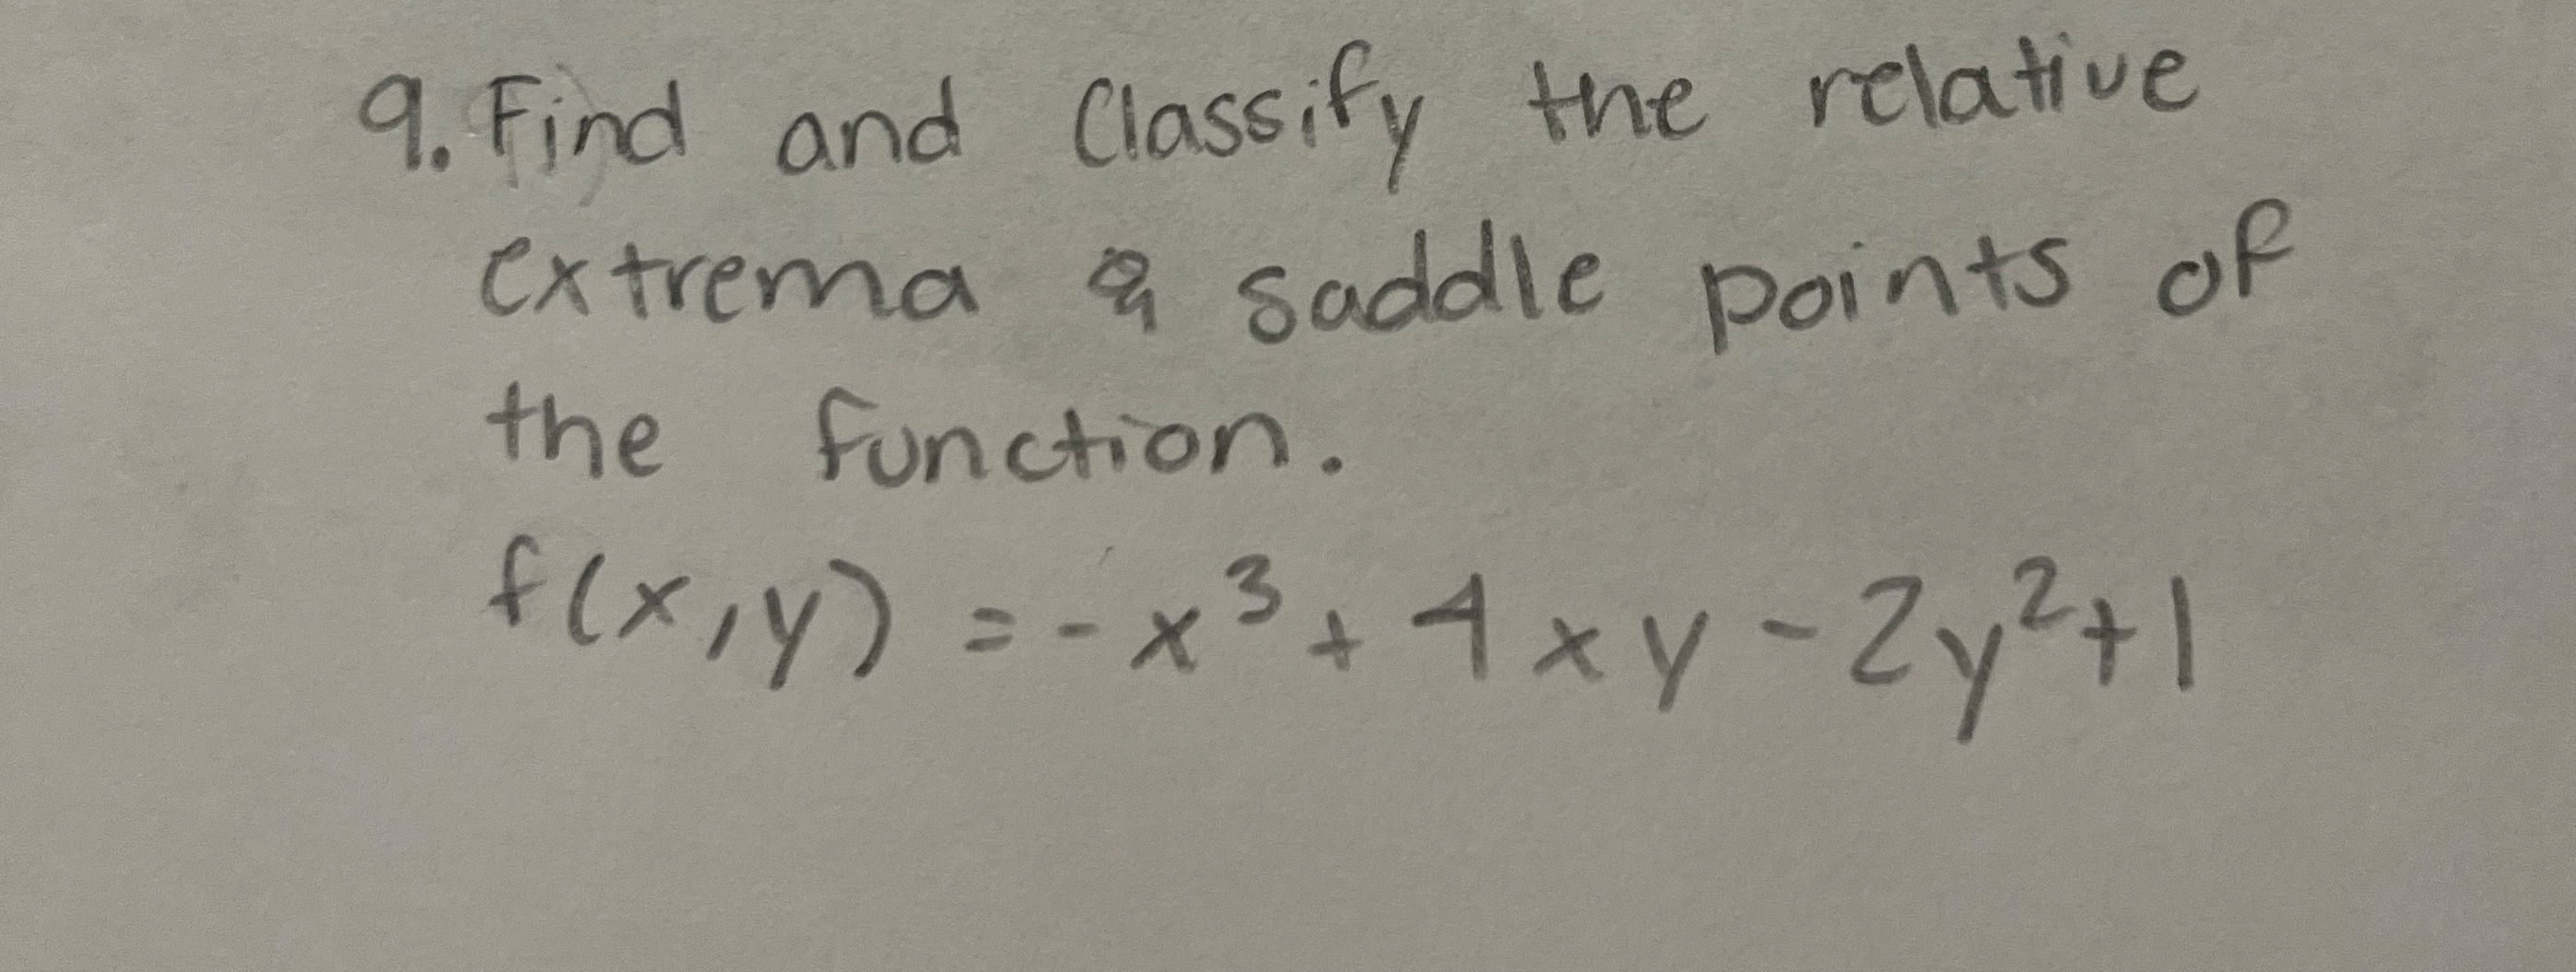 9. Find and Classify the relative
extrema & saddle points of
the function.
f(x,y) = -x³ + 4xy - 2y² + 1